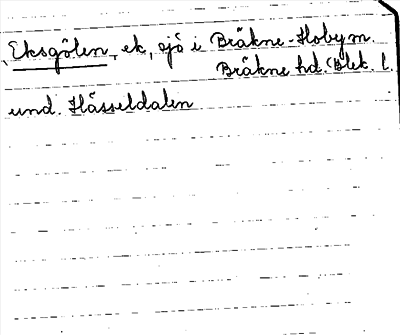 Eksgölen, ek, sjö i Bräkne-Hoby m.
Bräkne hd. (Blek. l.
und. Hässeldalen